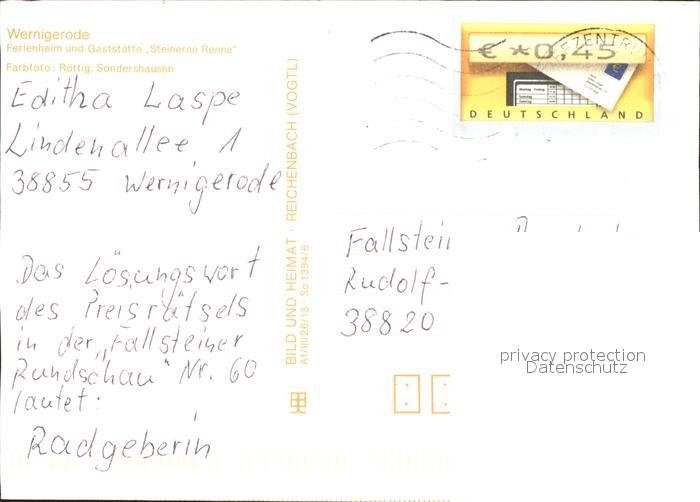 Wernigerode
Ferienheim und Gaststätte „Steinerne Renne“
Farbfoto: Röttig, Sondershausen
Editha Laspe
Lindenallee 1
38855 Wernigerode
Das Lösungswort
des Preisrätsels
in der „Fallsteiner
Rundschau“ Nr. 60
lautet:
Radgeberin
BILD UND HEIMAT · REICHENBACH (VOGTL)
A1/III/26/13 · So 1394/6
€ *0,45
DEUTSCHLAND
Rudolf-
38820
privacy protection
Datenschutz